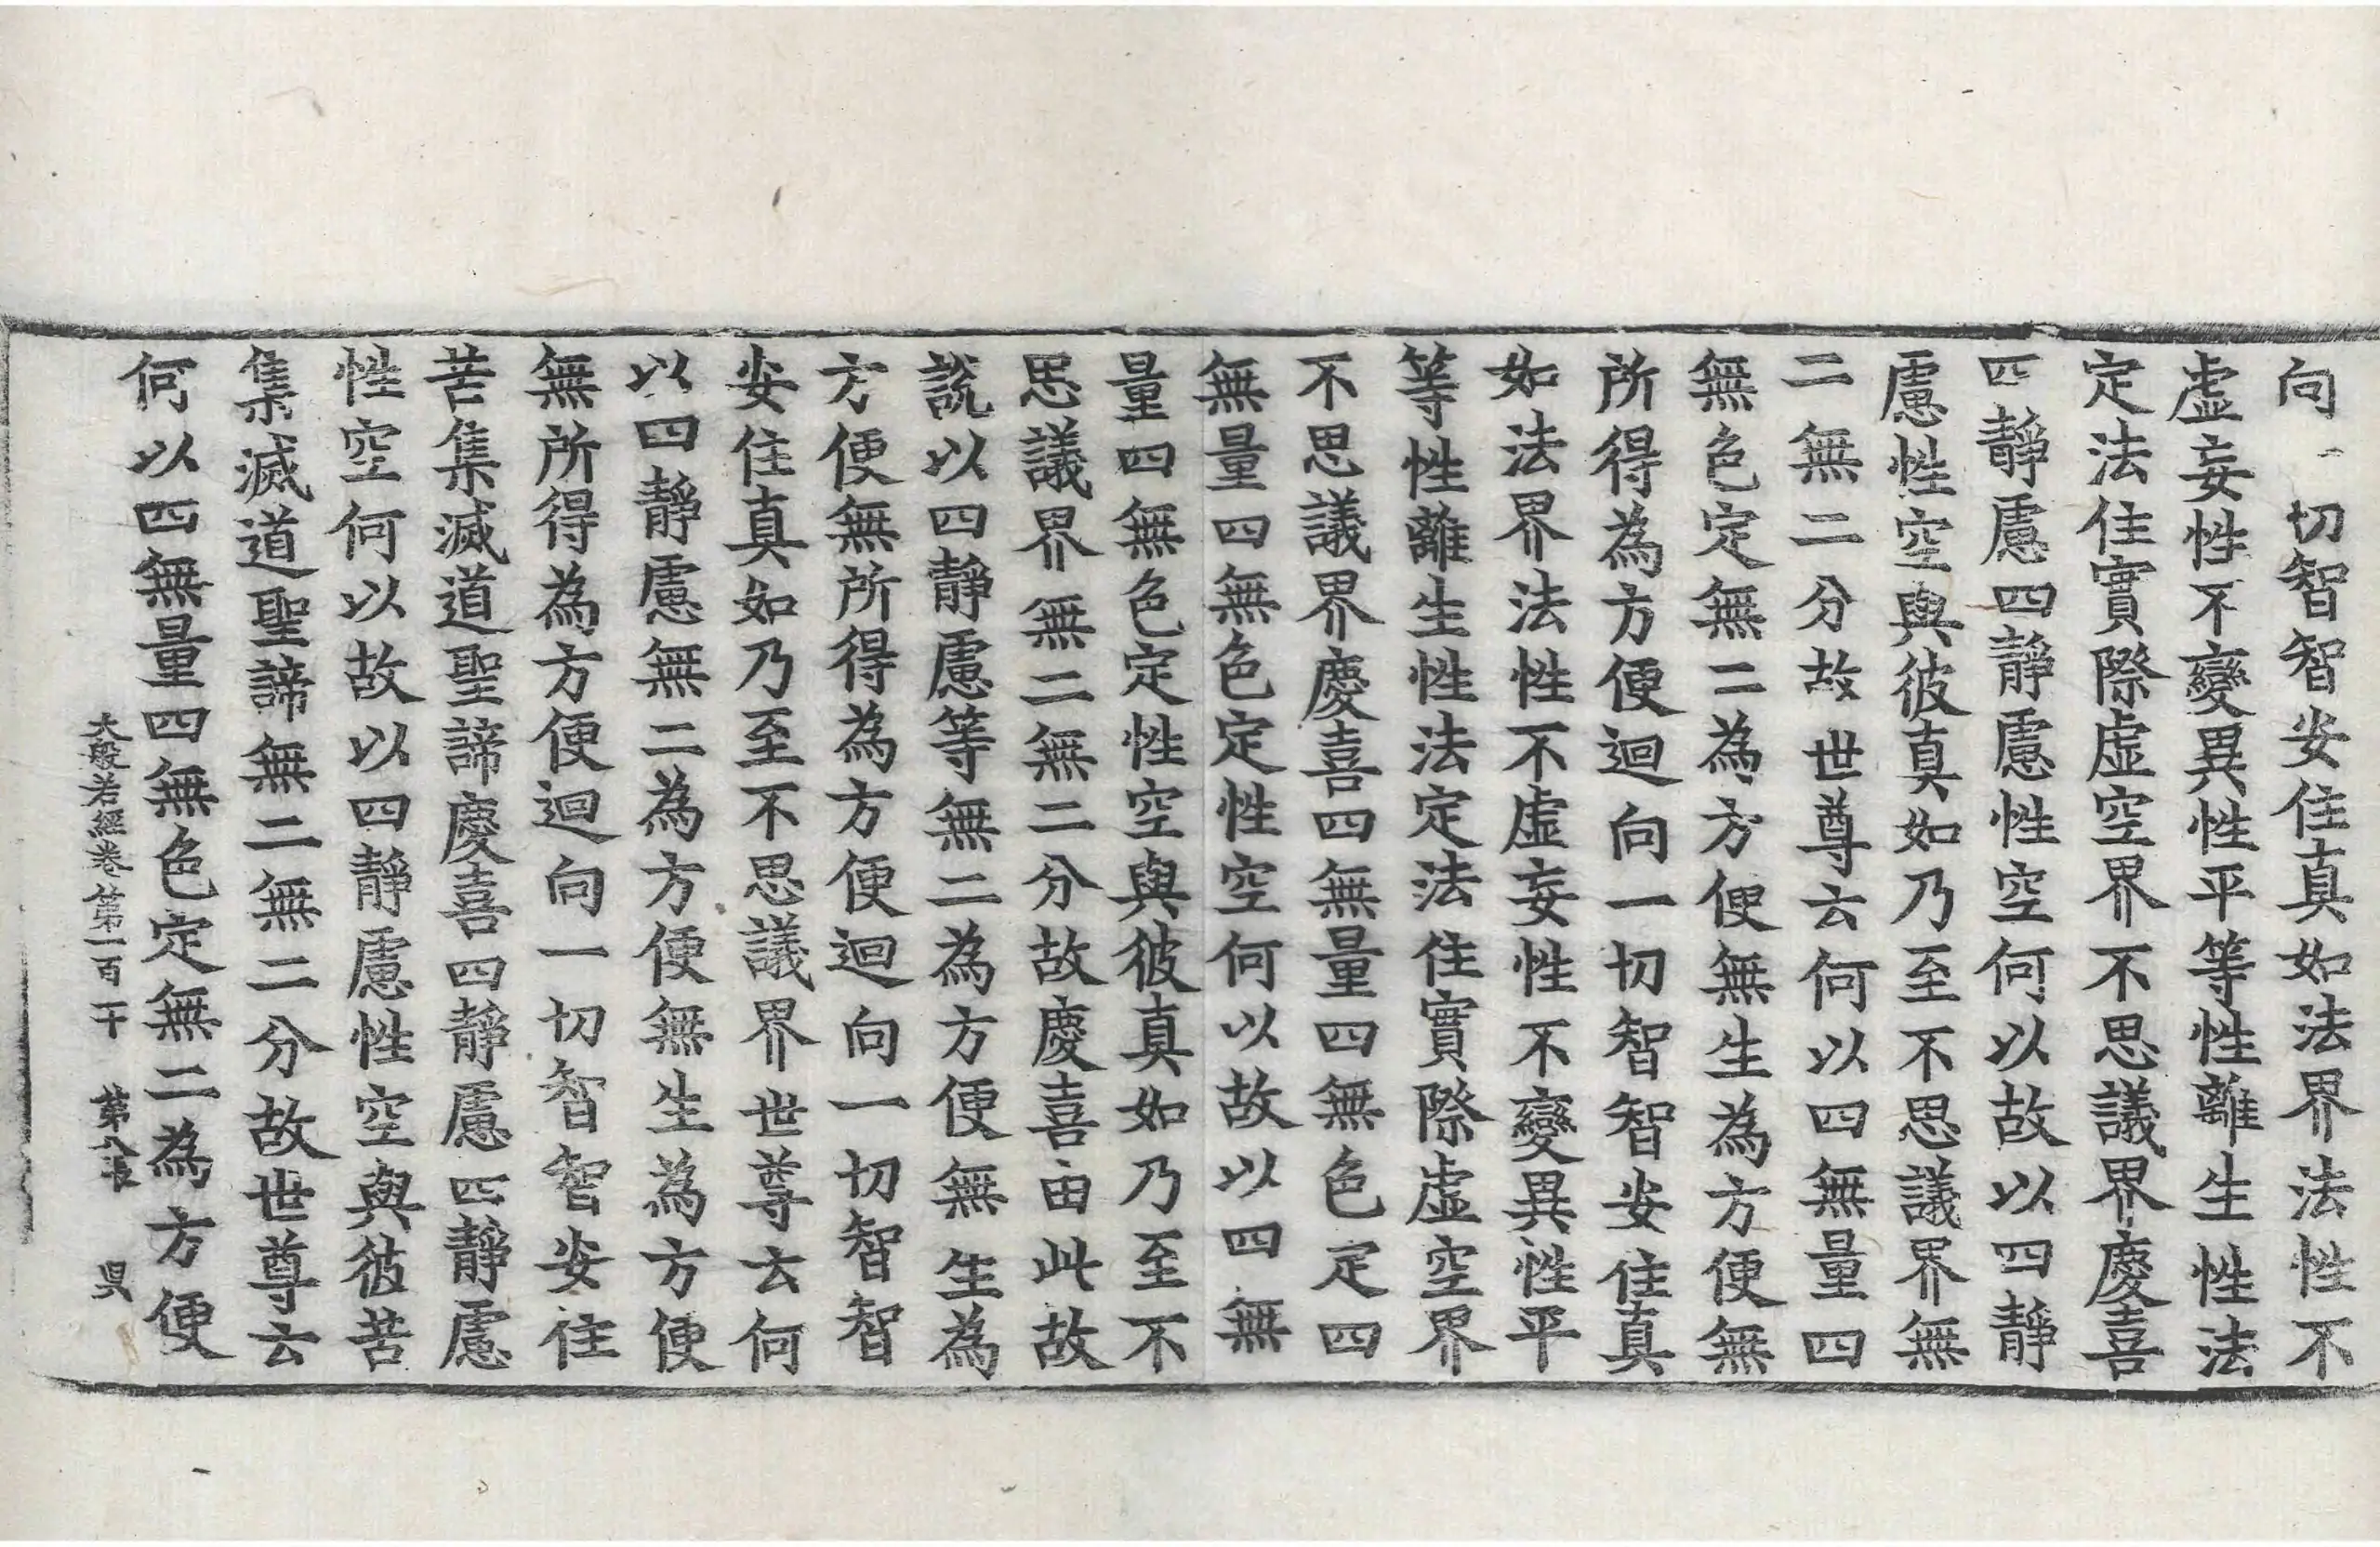 向一切智智安住真如法界法性不
虛妄性不變異性平等性離生性法
定法住實際虛空界不思議界慶喜
四靜慮四靜慮性空何以故以四靜
慮性空與彼真如乃至不思議界無
二無二分故世尊云何以四無量四
無色定無二為方便無生為方便無
所得為方便迴向一切智智安住真
如法界法性不虛妄性不變異性平
等性離生性法定法住實際虛空界
不思議界慶喜四無量四無色定四
無量四無色定性空何以故以四無
量四無色定性空與彼真如乃至不
思議界無二無二分故慶喜由此故
說以四靜慮等無二為方便無生為
方便無所得為方便迴向一切智智
安住真如乃至不思議界世尊云何
以四靜慮無二為方便無生為方便
無所得為方便迴向一切智智安住
苦集滅道聖諦慶喜四靜慮四靜慮
性空何以故以四靜慮性空與彼苦
集滅道聖諦無二無二分故世尊云
何以四無量四無色定無二為方便
大般若經卷第一百一十 第八張